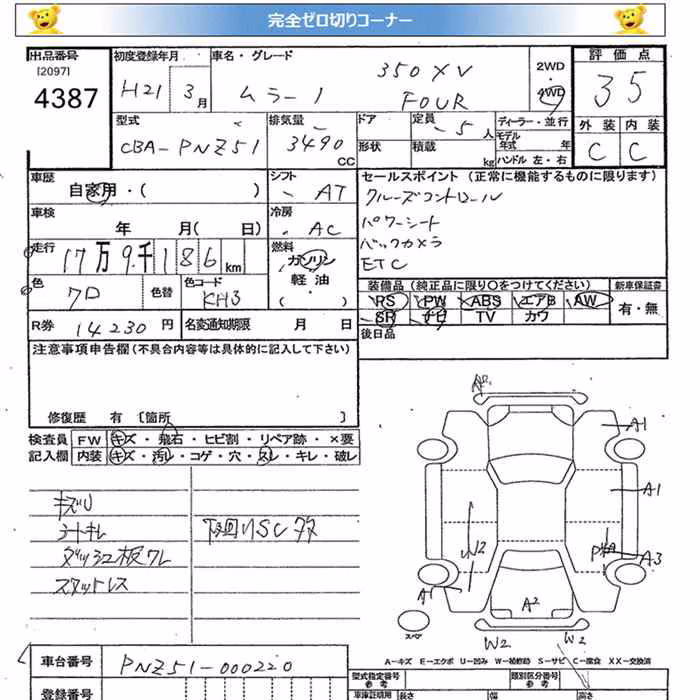 完全ゼロ切りコーナー
出品番号
[2097]
4387
初度登録年月
H21 3月
車名・グレード
ムラーノ
350XV
FOUR
2WD
4WD
評価点
35
外装 内装
C C
型式
CBA-PNZ51
排気量
3490
CC
ドア
形状
定員
5人
積載
kg
ディーラー・並行
モデル年式 年
ハンドル 左・右
車歴
自家用・( )
シフト
AT
セールスポイント(正常に機能するものに限ります)
クルーズコントロール
パワーシート
バックカメラ
ETC
車検
年 月( 日)
冷房
AC
走行
17万9千186km
燃料
ガソリン
軽油
色
クロ
色替
色コード
KH3
装備品(純正品に限り○をつけてください)
RS PW ABS エアB AW
SR ナビ TV カワ
新車保証書
有・無
R券 14230円
名変通知期限 月 日
後日品
注意事項申告欄(不具合内容等は具体的に記入して下さい)
修復歴 有 〔箇所 〕
検査員記入欄
FW キズ・飛石・ヒビ割・リペア跡・×要
内装 キズ・汚れ・コゲ・穴・スレ・キレ・破レ
キズU
シートキレ
ダッシュ板ワレ
スタットレス
下回りSC
A1
A1
A3
W2
A1
A2
W2 W2
スペア
A-キズ E-エクボ U-凹み W-補修跡 S-サビ C-腐食 XX-交換済
車台番号
PNZ51-000220
登録番号
型式指定番号
参考
類別区分番号
参考
車庫証明用
長さ 幅 高さ